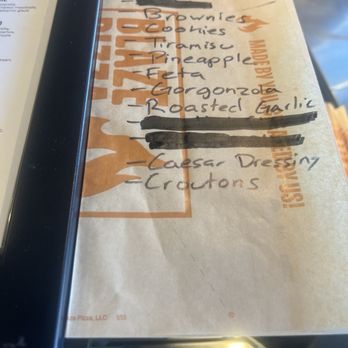 - Brownies
- Cookies
- Tiramisu
- Pineapple
- Feta
- Gorgonzola
- Roasted Garlic
- Caesar Dressing
- Croutons
BLAZE
PIZZA
MADE BY
US!
Pizza, LLC